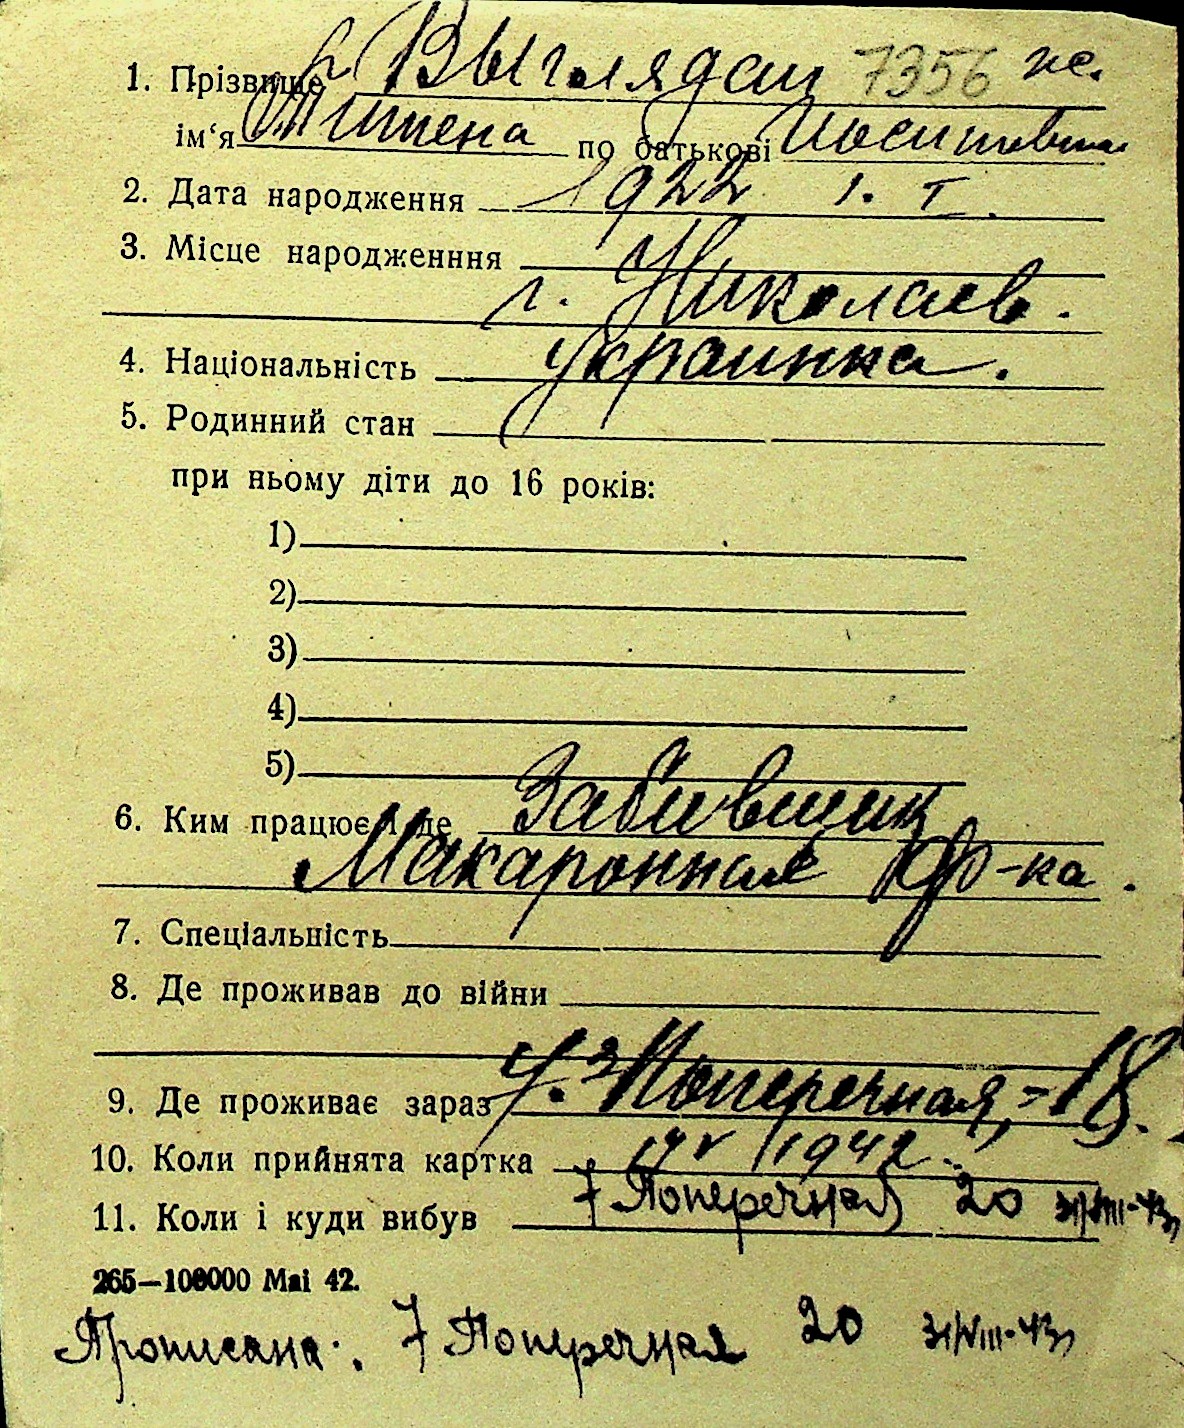 1. Прізвище Выглядаш 7356 же.
ім‘я по батькові
2. Дата народження 1922 1. I.
3. Місце народженння
г. Николаев.
4. Національність украинка.
5. Родинний стан
при ньому діти до 16 років:
1)
2)
3)
4)
5)
6. Ким працює і де Забивщик
Макаронная ф-ка.
7. Спеціальність
8. Де проживав до війни
9. Де проживає зараз Поперечная, 18.
10. Коли прийнята картка 1942
11. Коли і куди вибув 7 Поперечная 20 31/VIII-43
265—100000 Mai 42.
Прописана: 7 Поперечная 20 31/VIII-43